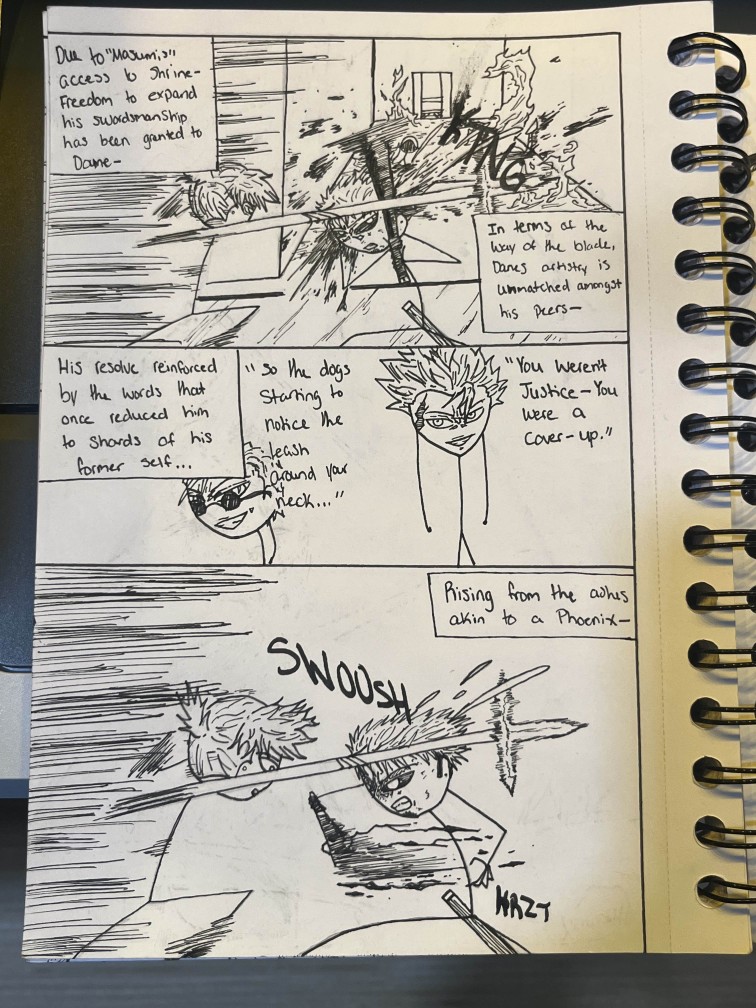 Due to "Masumi's"
access to Shrine-
Freedom to expand
his swordsmanship
has been granted to
Dame-
KTNG
In terms of the
way of the blade,
Danes artistry is
unmatched amongst
his peers-
His resolve reinforced
by the words that
once reduced him
to shards of his
former self...
"So the dogs
starting to
notice the
leash
around your
neck..."
"You weren't
Justice-You
were a
Cover-up."
Rising from the ashes
akin to a Phoenix-
SWOOSH
KRZT